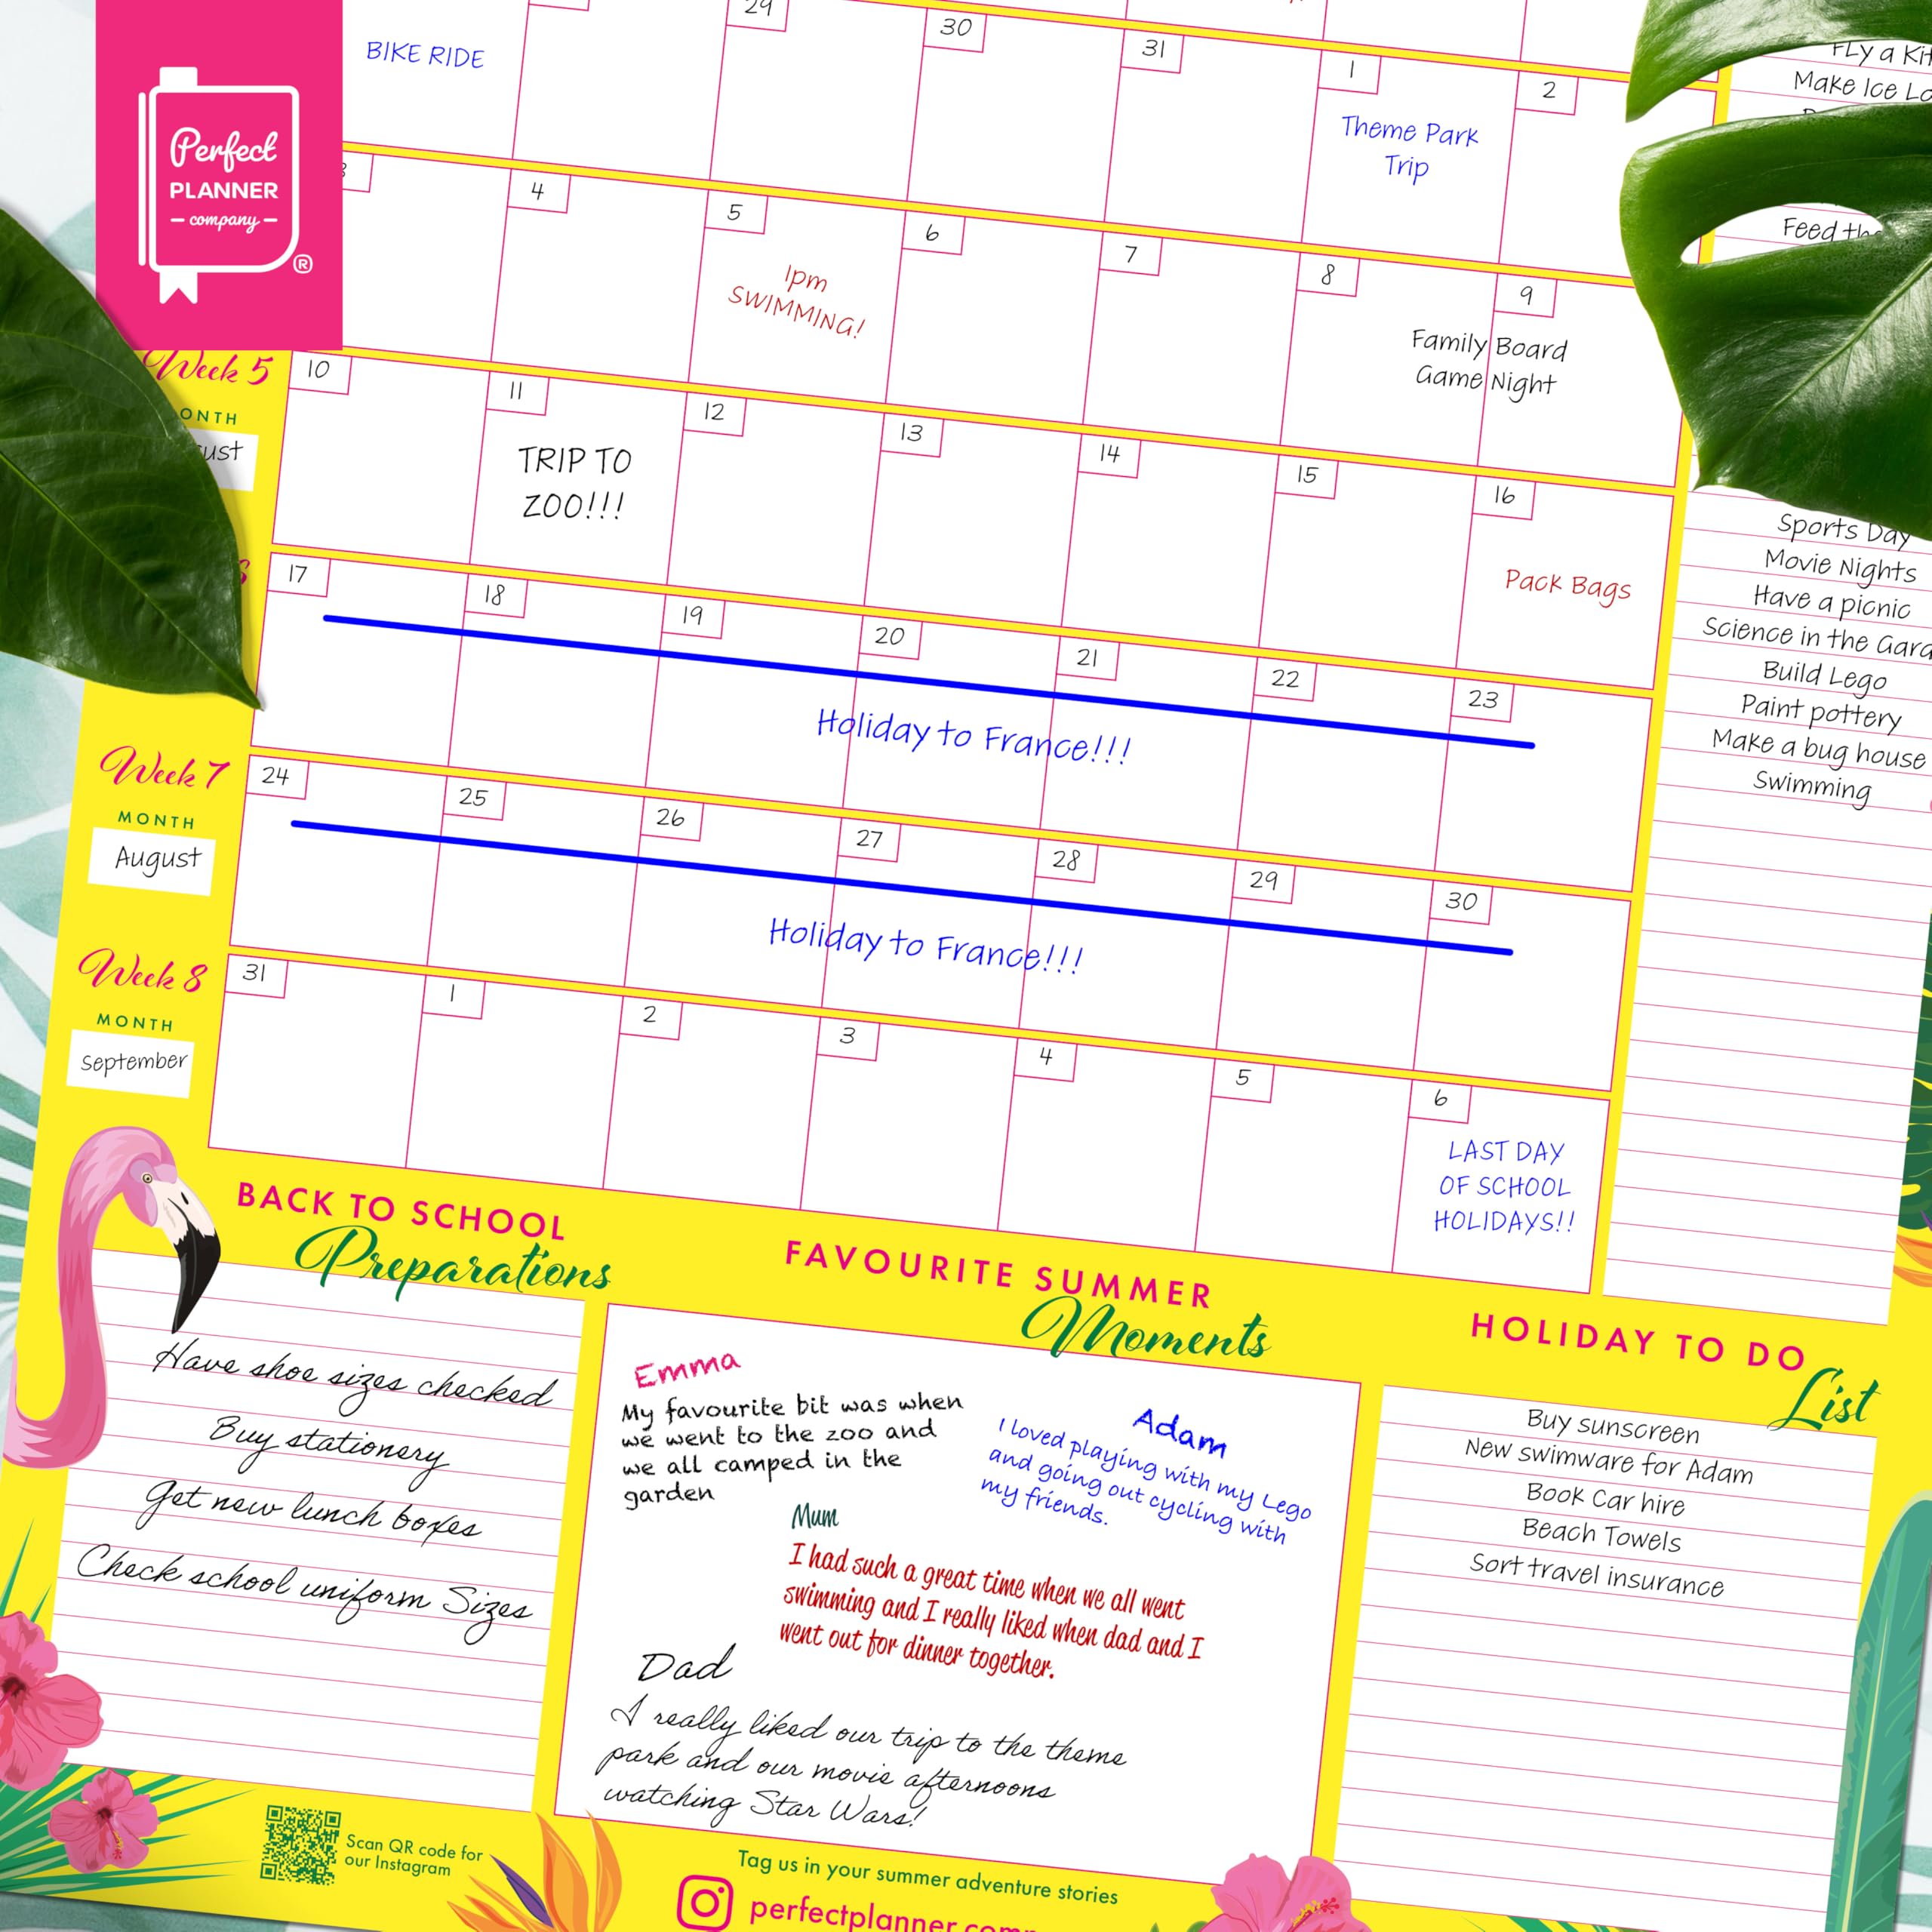 Perfect
PLANNER
company
®
29
30
31
1
2
BIKE RIDE
Theme Park
Trip
4
5
6
7
8
9
1pm
SWIMMING!
Family Board
Game Night
Week 5
10
11
12
13
14
15
16
TRIP TO
ZOO!!!
Pack Bags
17
18
19
20
21
22
23
Holiday to France!!!
Week 7
MONTH
August
24
25
26
27
28
29
30
Holiday to France!!!
Week 8
MONTH
September
31
1
2
3
4
5
6
LAST DAY
OF SCHOOL
HOLIDAYS!!
Fly a
Make Ice
Feed
Sports Day
Movie Nights
Have a picnic
Science in the
Build Lego
Paint pottery
Make a bug house
Swimming
BACK TO SCHOOL
Preparations
Have shoe sizes checked
Buy stationery
Get new lunch boxes
Check school uniform Sizes
FAVOURITE SUMMER
Moments
Emma
My favourite bit was when
we went to the zoo and
we all camped in the
garden
Adam
I loved playing with my Lego
and going out cycling with
my friends.
Mum
I had such a great time when we all went
swimming and I really liked when dad and I
went out for dinner together.
Dad
I really liked our trip to the theme
park and our movie afternoons
watching Star Wars!
HOLIDAY TO DO
List
Buy sunscreen
New swimware for Adam
Book Car hire
Beach Towels
Sort travel insurance
Scan QR code for
our Instagram
Tag us in your summer adventure stories